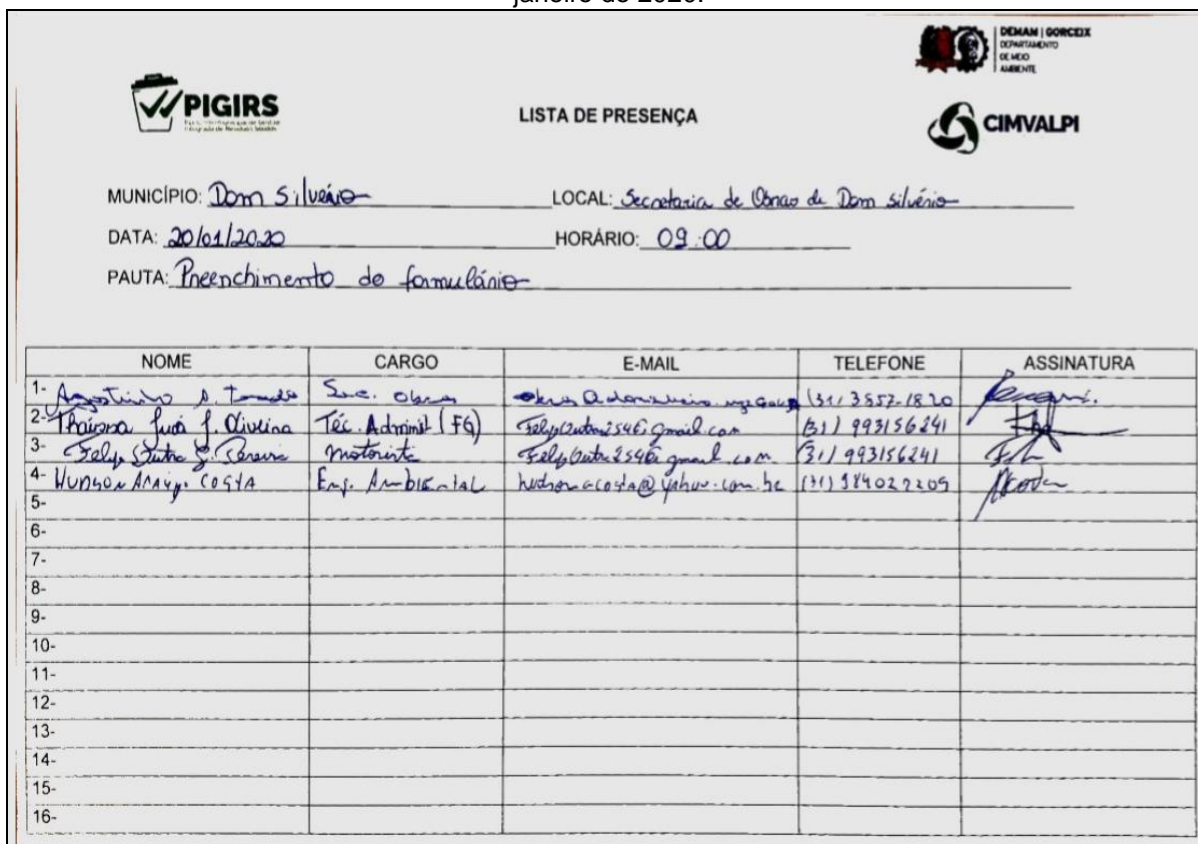 janeiro de 2020.
DEMAM | GORCEIX
DEPARTAMENTO
DE MEIO
AMBIENTE
PIGIRS
LISTA DE PRESENÇA
CIMVALPI
MUNICÍPIO: Dom Silvério LOCAL: Secretaria de Obras de Dom Silvério
DATA: 20/01/2020 HORÁRIO: 09:00
PAUTA: Preenchimento do formulário
NOME CARGO E-MAIL TELEFONE ASSINATURA
1- Agostinho Sec. Obras (31) 3857-1820
2- Oliveira Téc. Administ (FG) (31) 993156241
3- Felip Dutra S. Pereira motorista (31) 993156241
4- HUDSON ARAUJO COSTA Eng. Ambiental hudsonacosta@yahoo.com.br
5-
6-
7-
8-
9-
10-
11-
12-
13-
14-
15-
16-